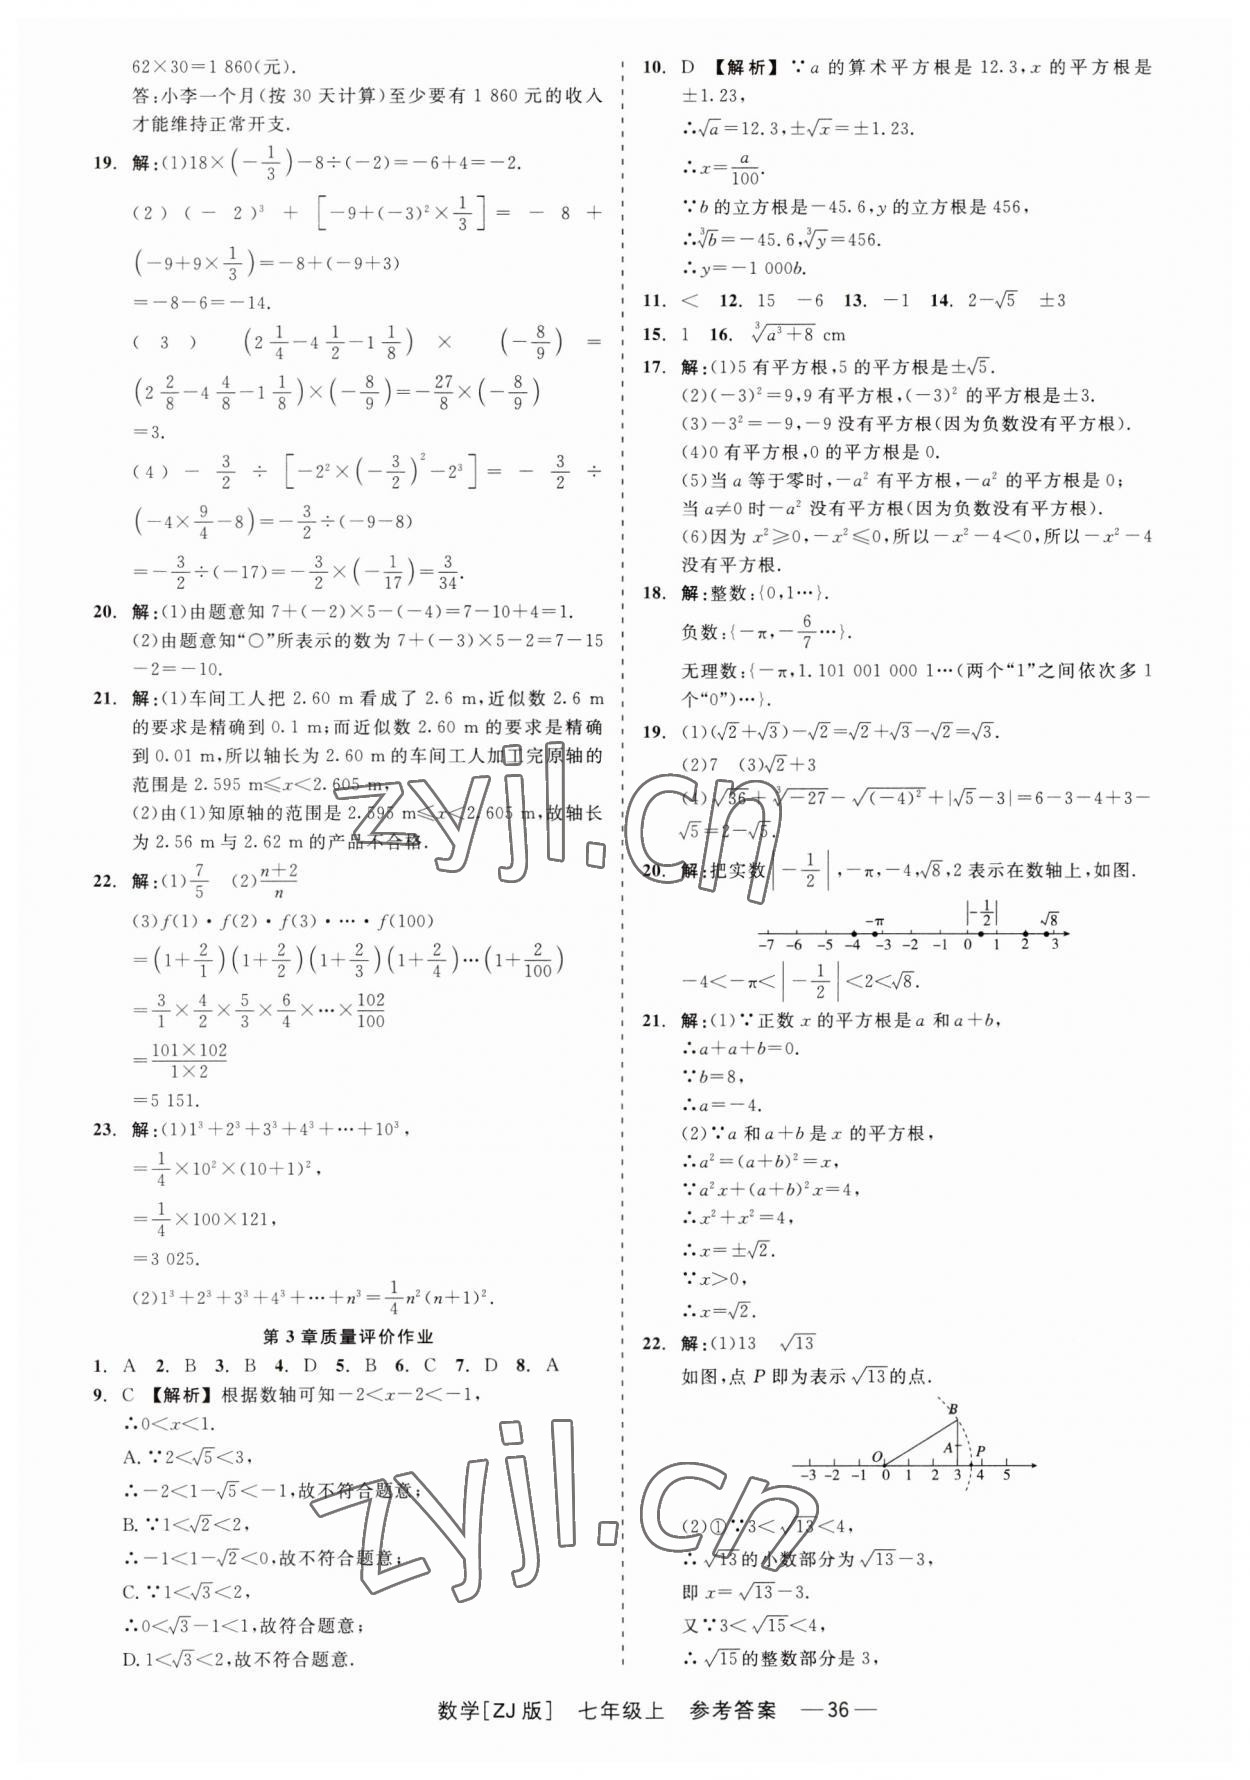 62×30=1 860(元).
答:小李一个月(按 30 天计算)至少要有 1 860 元的收入
才能维持正常开支.
19. 解:(1)18×(-1/3)-8÷(-2)=-6+4=-2.
(2)(-2)³+[-9+(-3)²×1/3]=-8+
(-9+9×1/3)=-8+(-9+3)
=-8-6=-14.
(3)(2 1/4-4 1/2-1 1/8)×(-8/9)=
(2 2/8-4 4/8-1 1/8)×(-8/9)=-27/8×(-8/9)
=3.
(4)-3/2÷[-2²×(-3/2)²-2³]=-3/2÷
(-4×9/4-8)=-3/2÷(-9-8)
=-3/2÷(-17)=-3/2×(-1/17)=3/34.
20. 解:(1)由题意知 7+(-2)×5-(-4)=7-10+4=1.
(2)由题意知“○”所表示的数为 7+(-3)×5-2=7-15
-2=-10.
21. 解:(1)车间工人把 2.60 m 看成了 2.6 m,近似数 2.6 m
的要求是精确到 0.1 m;而近似数 2.60 m 的要求是精确
到 0.01 m,所以轴长为 2.60 m 的车间工人加工完原轴的
范围是 2.595 m≤x<2.605 m,
(2)由(1)知原轴的范围是 2.595 m≤x<2.605 m,故轴长
为 2.56 m 与 2.62 m 的产品不合格.
22. 解:(1)7/5 (2)(n+2)/n
(3)f(1)·f(2)·f(3)·…·f(100)
=(1+2/1)(1+2/2)(1+2/3)(1+2/4)…(1+2/100)
=3/1×4/2×5/3×6/4×…×102/100
=(101×102)/(1×2)
=5 151.
23. 解:(1)1³+2³+3³+4³+…+10³,
=1/4×10²×(10+1)²,
=1/4×100×121,
=3 025.
(2)1³+2³+3³+4³+…+n³=1/4n²(n+1)².
第 3 章质量评价作业
1. A 2. B 3. B 4. D 5. B 6. C 7. D 8. A
9. C 【解析】根据数轴可知-2<x-2<-1,
∴0<x<1.
A.∵2<√5<3,
∴-2<1-√5<-1,故不符合题意;
B.∵1<√2<2,
∴-1<1-√2<0,故不符合题意;
C.∵1<√3<2,
∴0<√3-1<1,故符合题意;
D.1<√3<2,故不符合题意.
10. D 【解析】∵a 的算术平方根是 12.3,x 的平方根是
±1.23,
∴√a=12.3,±√x=±1.23.
∴x=a/100.
∵b 的立方根是-45.6,y 的立方根是 456,
∴³√b=-45.6,³√y=456.
∴y=-1 000b.
11. < 12. 15 -6 13. -1 14. 2-√5 ±3
15. 1 16. ³√(a³+8) cm
17. 解:(1)5 有平方根,5 的平方根是±√5.
(2)(-3)²=9,9 有平方根,(-3)² 的平方根是±3.
(3)-3²=-9,-9 没有平方根(因为负数没有平方根).
(4)0 有平方根,0 的平方根是 0.
(5)当 a 等于零时,-a² 有平方根,-a² 的平方根是 0;
当 a≠0 时-a² 没有平方根(因为负数没有平方根).
(6)因为 x²≥0,-x²≤0,所以-x²-4<0,所以-x²-4
没有平方根.
18. 解:整数:{0,1…}.
负数:{-π,-6/7…}.
无理数:{-π,1.101 001 000 1…(两个“1”之间依次多 1
个“0”)…}.
19. (1)(√2+√3)-√2=√2+√3-√2=√3.
(2)7 (3)√2+3
(4)√36+³√-27-√(-4)²+|√5-3|=6-3-4+3-
√5=2-√5.
20. 解:把实数|-1/2|,-π,-4,√8,2 表示在数轴上,如图.
-π |-1/2| √8
-7 -6 -5 -4 -3 -2 -1 0 1 2 3
-4<-π<|-1/2|<2<√8.
21. 解:(1)∵正数 x 的平方根是 a 和 a+b,
∴a+a+b=0.
∵b=8,
∴a=-4.
(2)∵a 和 a+b 是 x 的平方根,
∴a²=(a+b)²=x,
∵a²x+(a+b)²x=4,
∴x²+x²=4,
∴x=±√2.
∵x>0,
∴x=√2.
22. 解:(1)13 √13
如图,点 P 即为表示 √13的点.
B
A P
O
-3 -2 -1 0 1 2 3 4 5
(2)①∵3<√13<4,
∴√13的小数部分为 √13-3,
即 x=√13-3.
又∵3<√15<4,
∴√15的整数部分是 3,
数学[ZJ版] 七年级上 参考答案 —36—
zyjl.cn
zyjl.cn